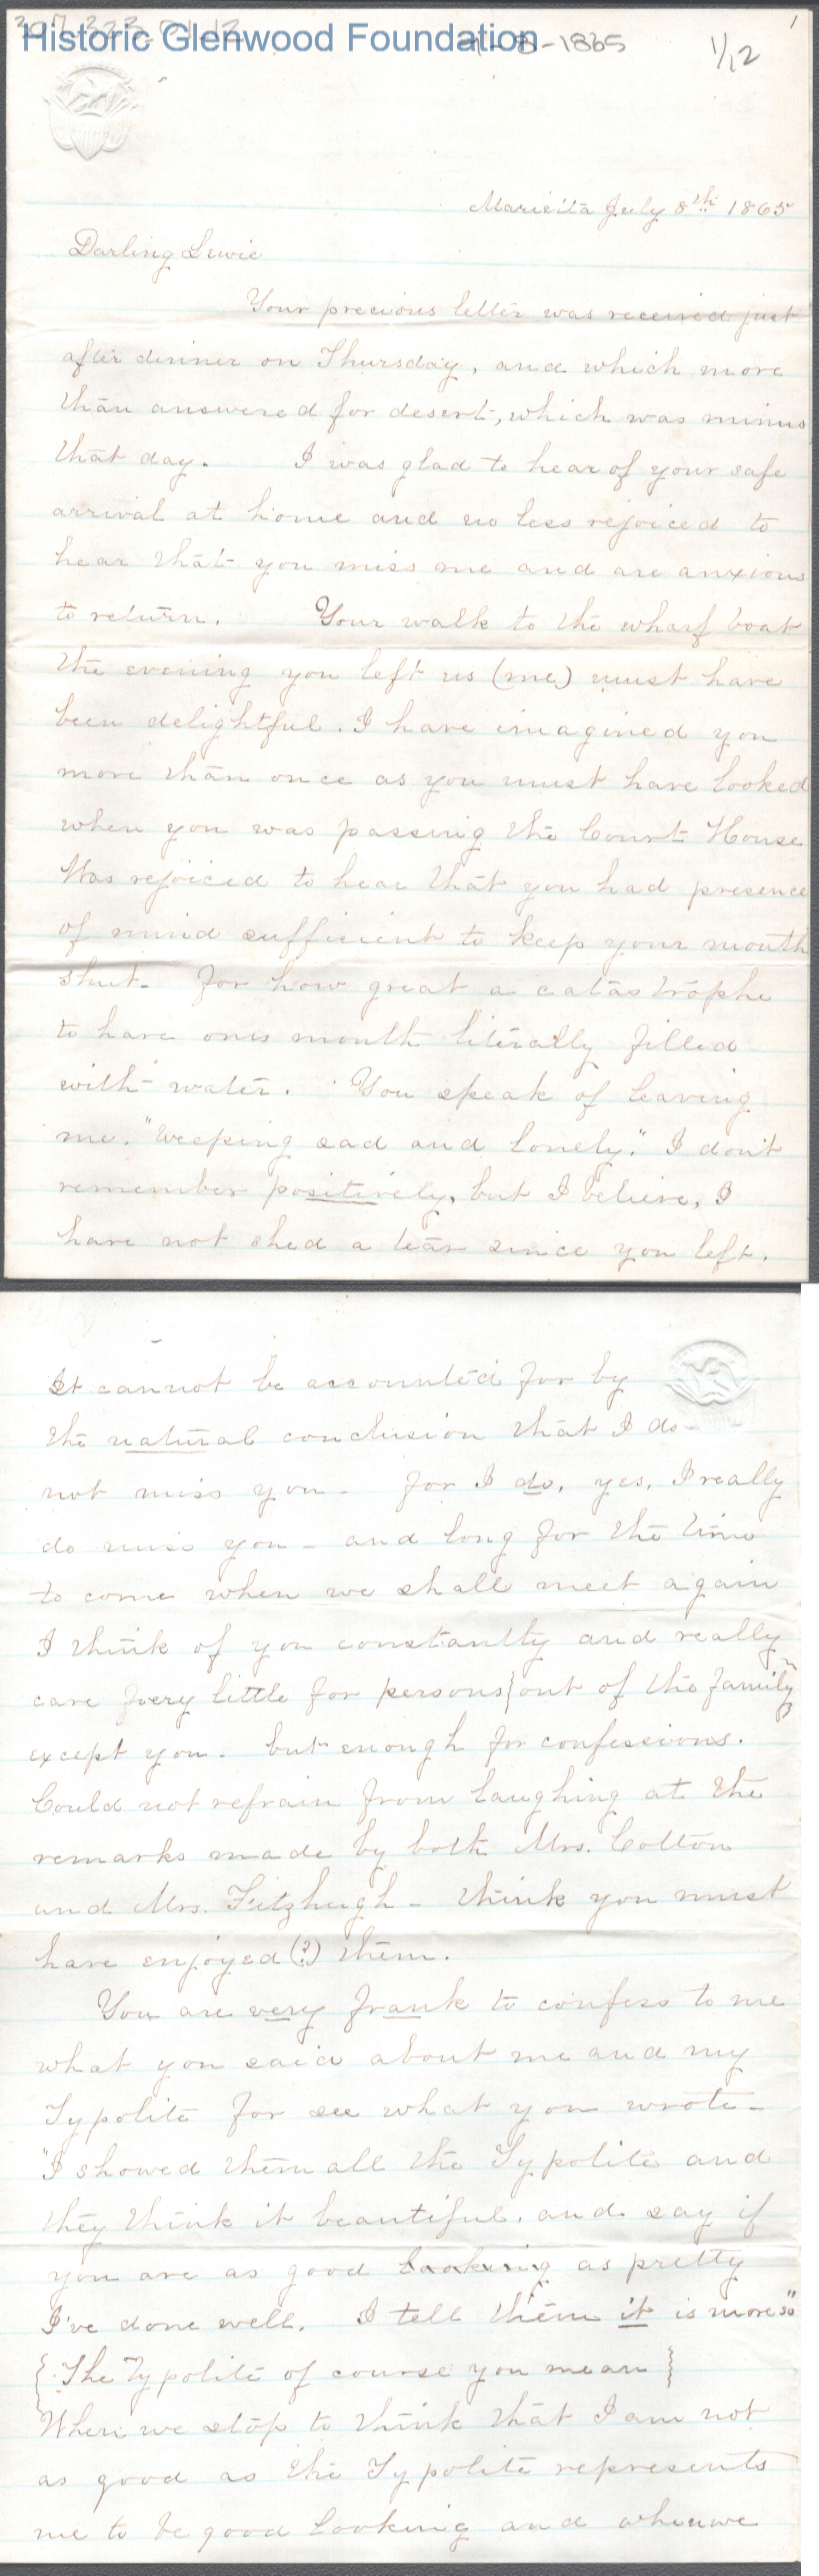 Historic Glenwood Foundation
-8-1865
1/12
1
Marietta July 8th 1865
Darling Lewie
Your precious letter was received just
after dinner on Thursday, and which more
than answered for desert, which was minus
that day. I was glad to hear of your safe
arrival at home and no less rejoiced to
hear that you miss me and are anxious
to return. Your walk to the wharf boat
the evening you left us (me) must have
been delightful. I have imagined you
more than once as you must have looked
when you was passing the Court House
Was rejoiced to hear that you had presence
of mind sufficient to keep your mouth
shut. For how great a catastrophe
to have ones mouth literally filled
with water. You speak of leaving
me, "Weeping sad and lonely." I don't
remember positively, but I believe, I
have not shed a tear since you left.
It cannot be accounted for by
the natural conclusion that I do
not miss you - for I do, yes, I really
do miss you - and long for the time
to come when we shall meet again
I think of you constantly and really
care very little for persons {out of the family}
except you. but enough for confessions.
Could not refrain from laughing at the
remarks made by both Mrs. Cotton
and Mrs. Fitzhugh - think you must
have enjoyed (?) them.
You are very frank to confess to me
what you said about me and my
Typolite for see what you wrote -
"I showed them all the Typolite and
they think it beautiful, and say if
you are as good looking as pretty
I've done well. I tell them it is more so"
{The Typolite of course you mean}
When we stop to think that I am not
as good as the Typolite represents
me to be good looking and when we